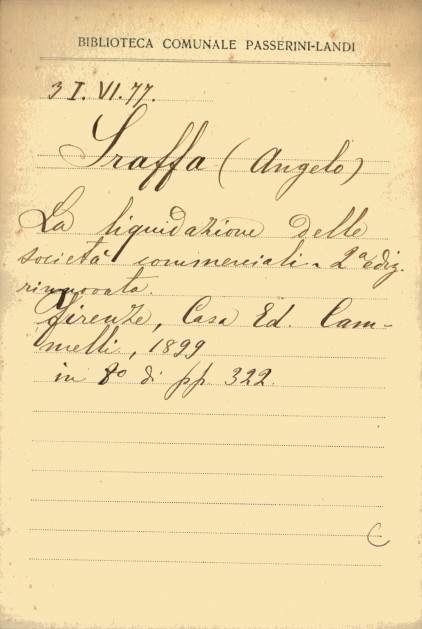 BIBLIOTECA COMUNALE PASSERINI-LANDI
3 I. VI. 77.
Sraffa (Angelo)
La liquidazione delle
società commerciali. 2ª ediz.
rinnovata.
Firenze, Casa Ed. Cam-
melli, 1899
in 8º di pp. 322.
C